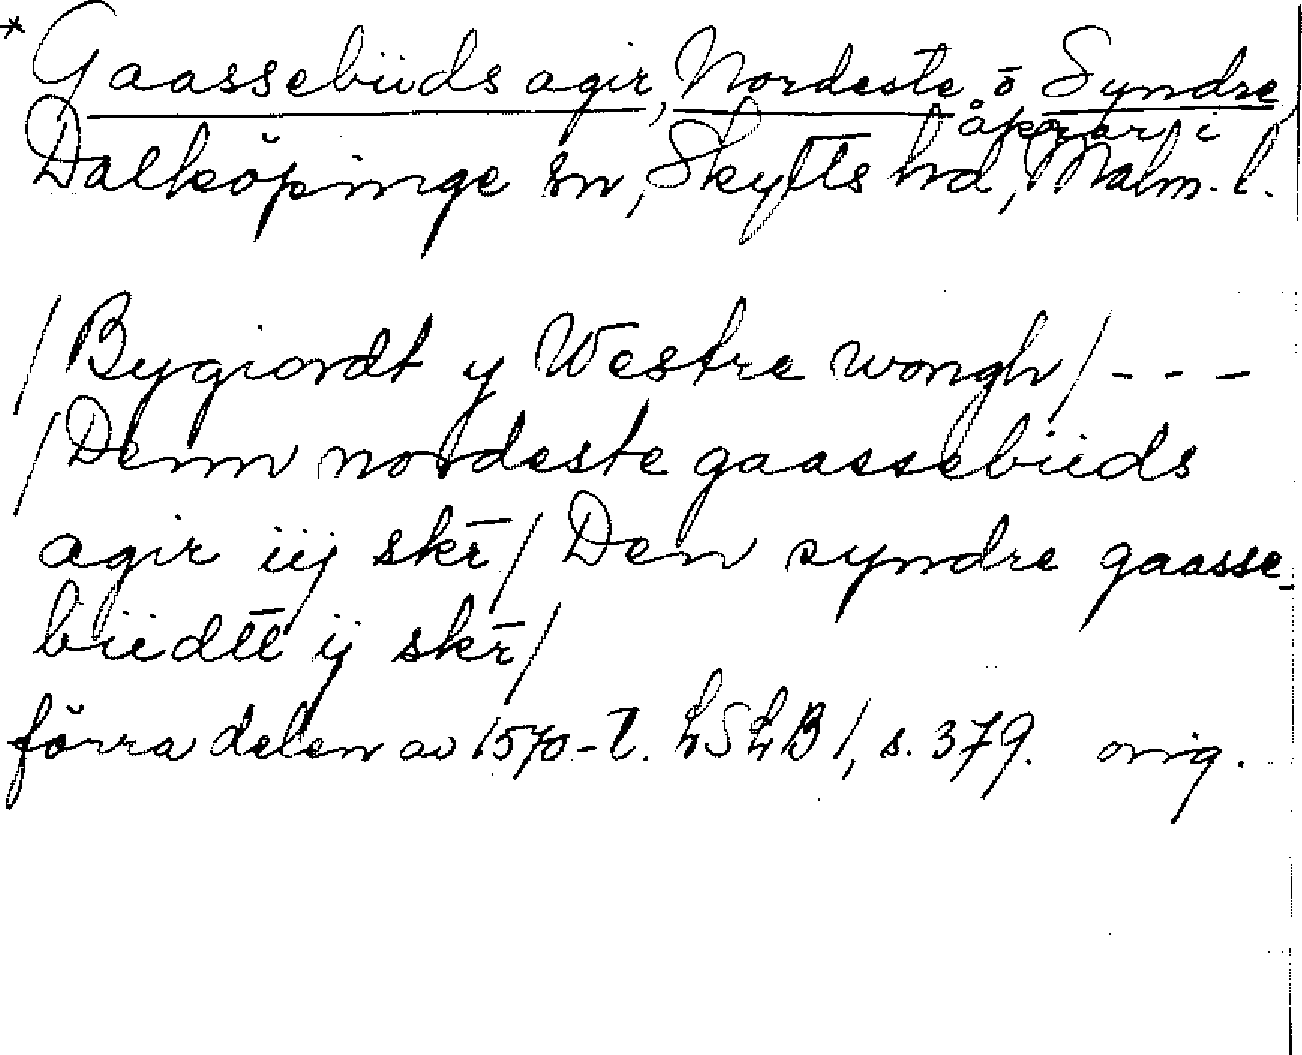 * Gaassebüds agir, Nordeste o Syndre,
åkrar i
Dalköpinge sn, Skytts hd, Malm. l.
/ Bygiordt y Westre wongh / - - -
/ Denn nordeste gaassebüds
agir iij skr̄ / Den syndre gaasse-
büdtt ij skr̄ /
förra delen av 1570-t. LSLB 1, s. 379. orig.